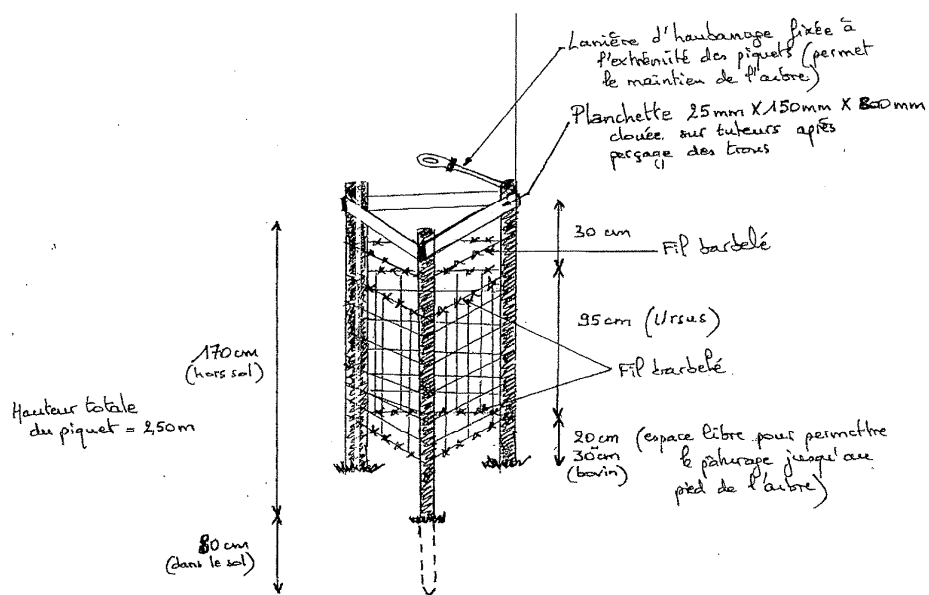 Lanière d'haubanage fixée à
l'extrémité des piquets (permet
le maintien de l'arbre)
Planchette 25mm X 150mm X 800mm
clouée sur tuteurs après
perçage des trous
30 cm
Fil barbelé
95cm (Ursus)
Fil barbelé
170cm
(hors sol)
Hauteur totale
du piquet = 2,50m
20cm (espace libre pour permettre
30cm le pâturage jusqu'au
(bovin) pied de l'arbre)
80cm
(dans le sol)